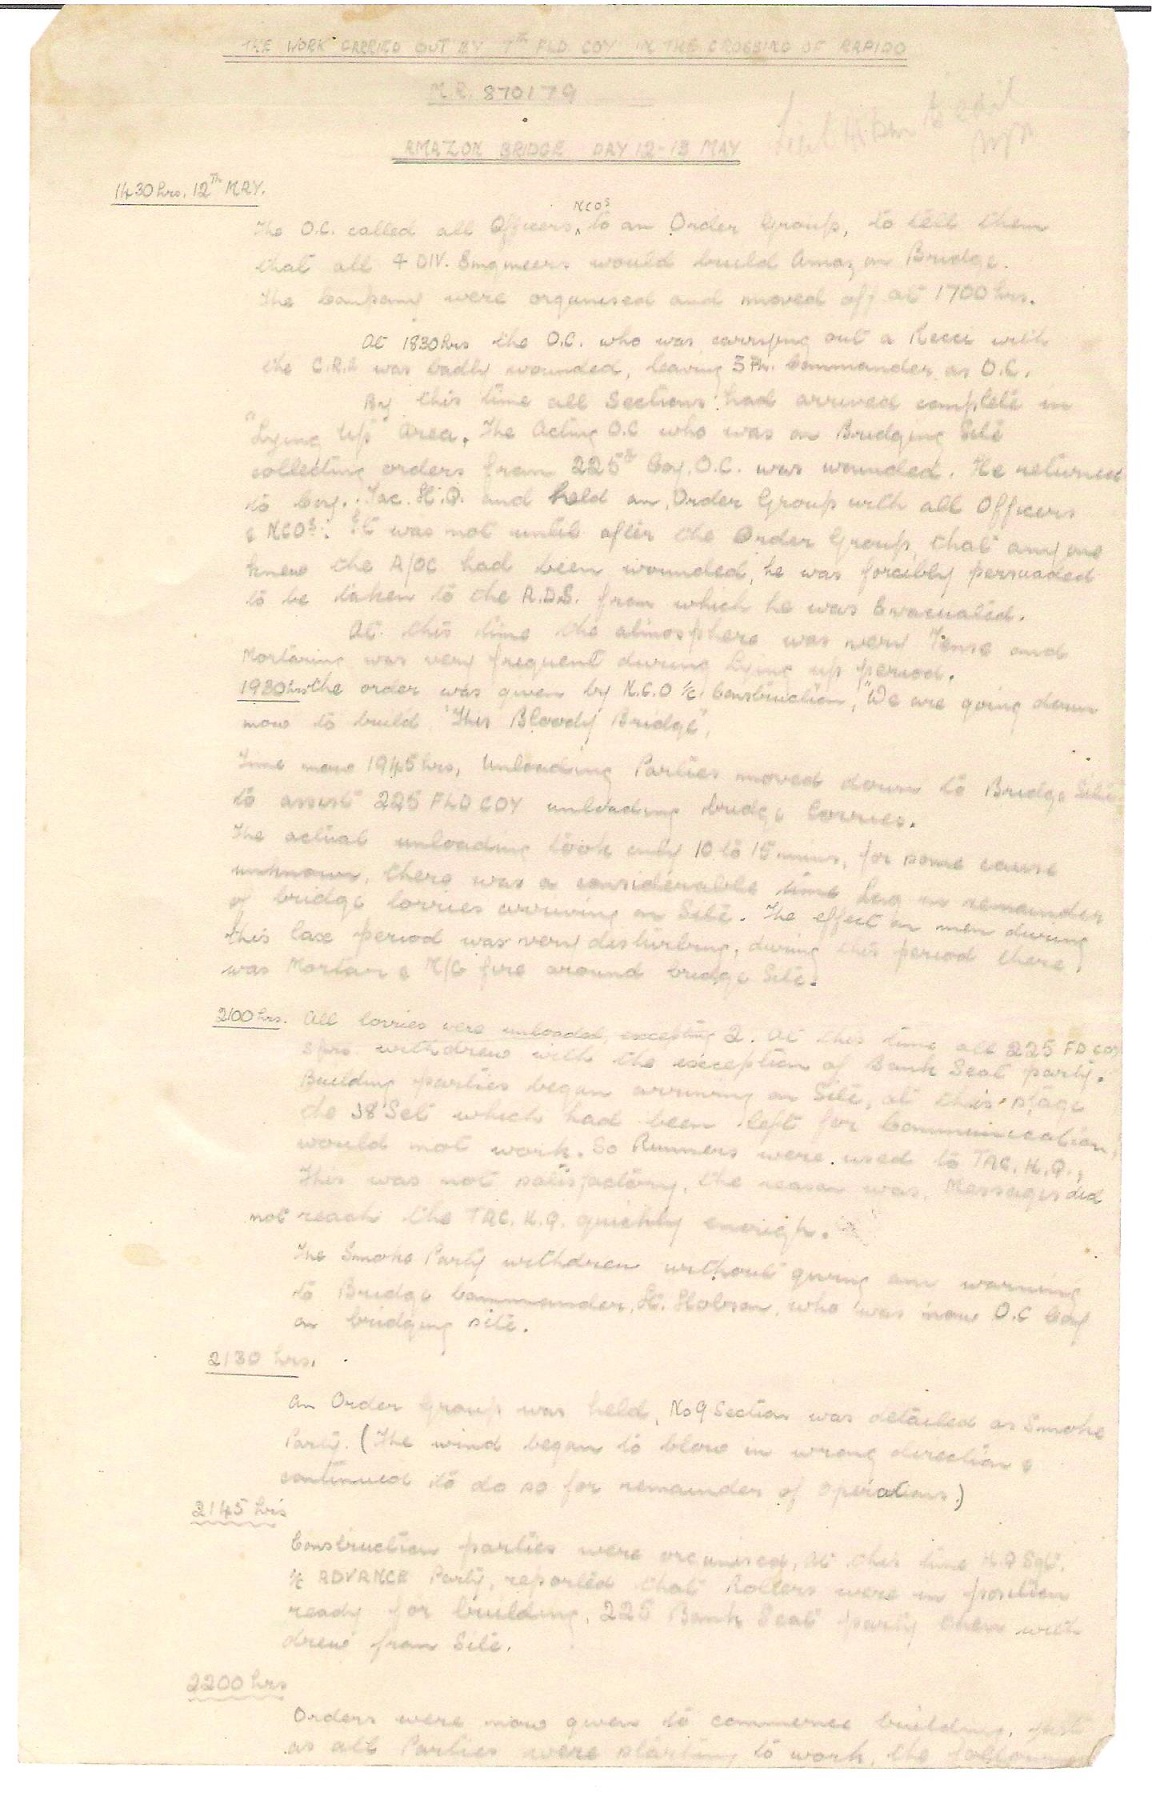 THE WORK CARRIED OUT BY 7TH FLD. COY IN THE CROSSING OF RAPIDO
M.R. 870179
AMAZON BRIDGE DAY 12-13 MAY
1430 hrs. 12TH MAY.
NCOS
The O.C. called all Officers, to an Order Group, to tell them
that all 4 DIV. Engineers would build Amazon Bridge.
The Company were organised and moved off at 1700 hrs.
At 1830 hrs the O.C. who was carrying out a Recce with
the C.R.E was badly wounded, leaving 3 Pn. Commander as O.C.
By this time all Sections had arrived complete in
"Lying Up" Area. The Acting O.C who was on Bridging Site
collecting orders from 225th Coy. O.C. was wounded. He returned
to Coy. Tac. H.Q. and held an Order Group with all Officers
& NCOs. It was not until after the Order Group, that any one
knew the A/OC had been wounded, he was forcibly persuaded
to be taken to the A.D.S. from which he was Evacuated.
At this time the atmosphere was very Tense and
Mortaring was very frequent during Lying up period.
1930 hrs the order was given by N.C.O i/c Construction, "We are going down
now to build "This Bloody Bridge",
Time now 1945 hrs, Unloading Parties moved down to Bridge Site
to assist 225 FLD COY unloading bridge lorries.
The actual unloading took only 10 to 15 mins, for some cause
unknown, there was a considerable time lag in remainder
of bridge lorries arriving on Site. The effect on men during
this lax period was very disturbing, during this period there
was Mortar & M/G fire around bridge Site.
2100 hrs. All lorries were unloaded, excepting 2. At this time all 225 FD COY
Sprs withdrew with the exception of Bank Seat party.
Building parties began arriving on Site, at this stage
the 38 Set which had been left for Communication,
would not work. So Runners were used to TAC. H.Q.,
This was not satisfactory, the reason was, Messages did
not reach the TAC. H.Q. quickly enough.
The Smoke Party withdrew without giving any warning
to Bridge Commander, Lt. Hobson, who was now O.C Coy
on bridging site.
2130 hrs.
An Order Group was held, No 9 Section was detailed as Smoke
Party. (The wind began to blow in wrong direction &
continued to do so for remainder of operations.)
2145 hrs
Construction parties were organised, At this time H.Q Sgt.
i/c ADVANCE Party, reported that Rollers were in position
ready for building, 225 Bank Seat party then with
drew from Site.
2200 hrs
Orders were now given to commence building, just
as all Parties were starting to work, the following